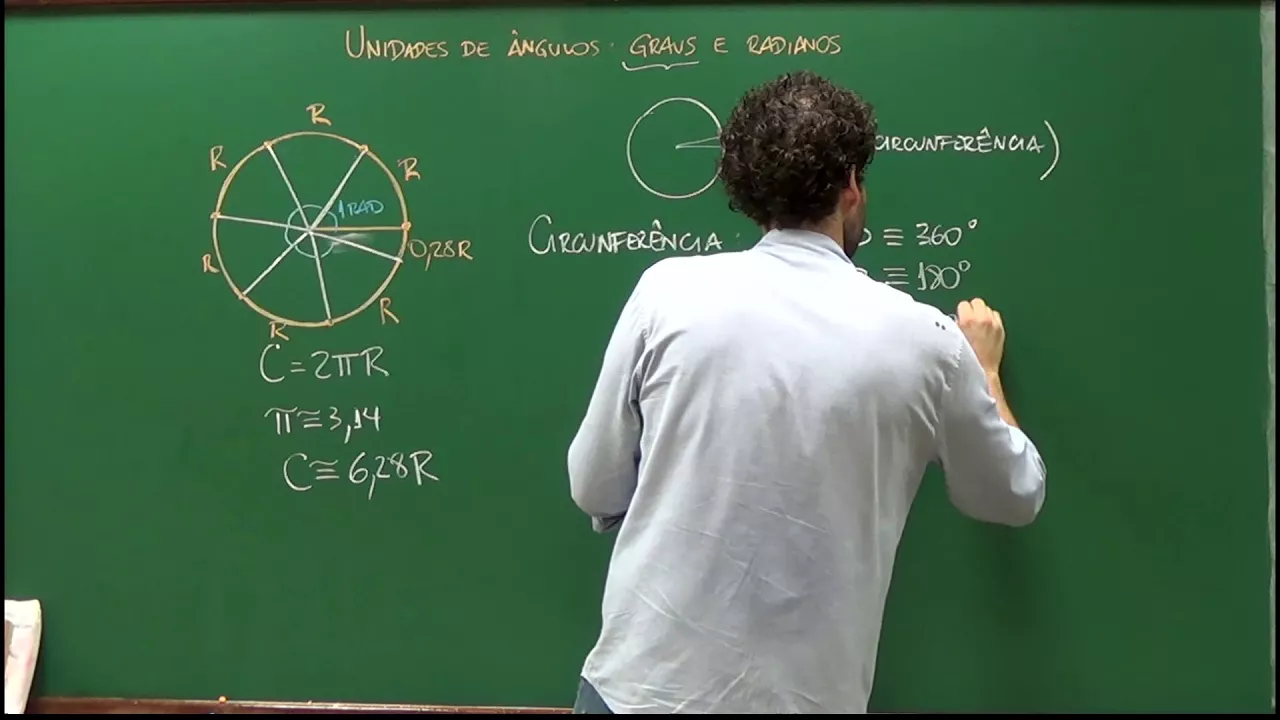 UNIDADES DE ÂNGULOS: GRAUS E RADIANOS
R
R
R
1 RAD
0,28R
R
R
R
C = 2πR
π ≅ 3,14
C ≅ 6,28R
CIRCUNFERÊNCIA)
CIRCUNFERÊNCIA
≡ 360°
≡ 180°